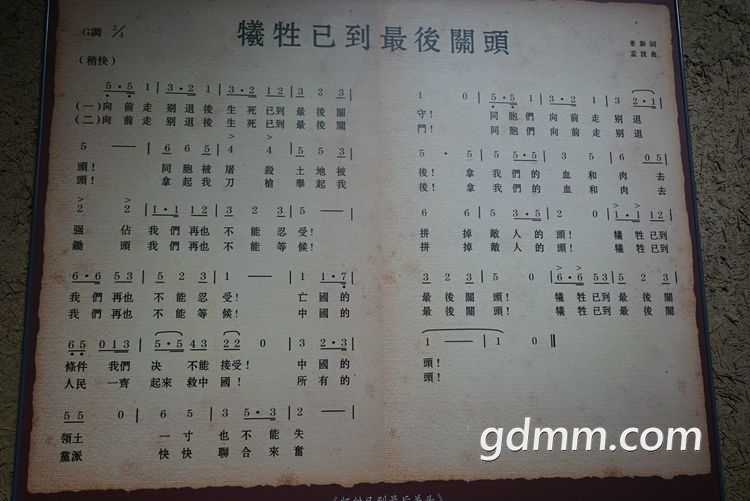 犧牲已到最後關頭
G調 2/4
麥新詞
孟波曲
(稍快)
5·5 1 | 3·2 1 | 3·1 1 2 | 3 2 3 |
(一)向前走 别退後 生死已到 最後關
(二)向前走 别退後 生死已到 最後關
5 — | 6 6 5 | 4 4 | 5 5 3 |
頭! 同胞被 屠殺 土地被
頭! 拿起我 刀槍 舉起我
2 2 | 1·1 1 2 | 3 2 3 | 5 — |
强佔 我們再也 不能忍受!
鋤頭 我們再也 不能等候!
6·6 5 3 | 5 2 3 | 1 — | 1 1·7 |
我們再也 不能忍受! 亡國的
我們再也 不能等候! 中國的
6 5 0 1 3 | 5·5 4 3 | 2 2 0 | 3 2·3 |
條件我們 决不能 接受! 中國的
人民一齊 起來救 中國! 所有的
5 5 0 | 6 5 | 3 5·3 | 2 — |
領土 一寸也不能失
黨派 快快聯合來奮
1 0 | 5·5 1 | 3·2 1 | 3 2·1 |
守! 同胞們 向前走 别退
鬥! 同胞們 向前走 别退
5 · 5 | 5 5·5 | 3 2 | 6 0 5 |
後!拿 我們的 血和 肉去
後!拿 我們的 血和 肉去
6 6 | 5 3·5 | 2 0 | 1·1 1 2 |
拼掉 敵人的 頭! 犧牲已到
拼掉 敵人的 頭! 犧牲已到
3 2 3 | 5 0 | 6·6 5 3 | 5 2 3 |
最後關頭! 犧牲已到 最後關
最後關頭! 犧牲已到 最後關
1 — | 1 0 ‖
頭!
頭!
gdmm.com